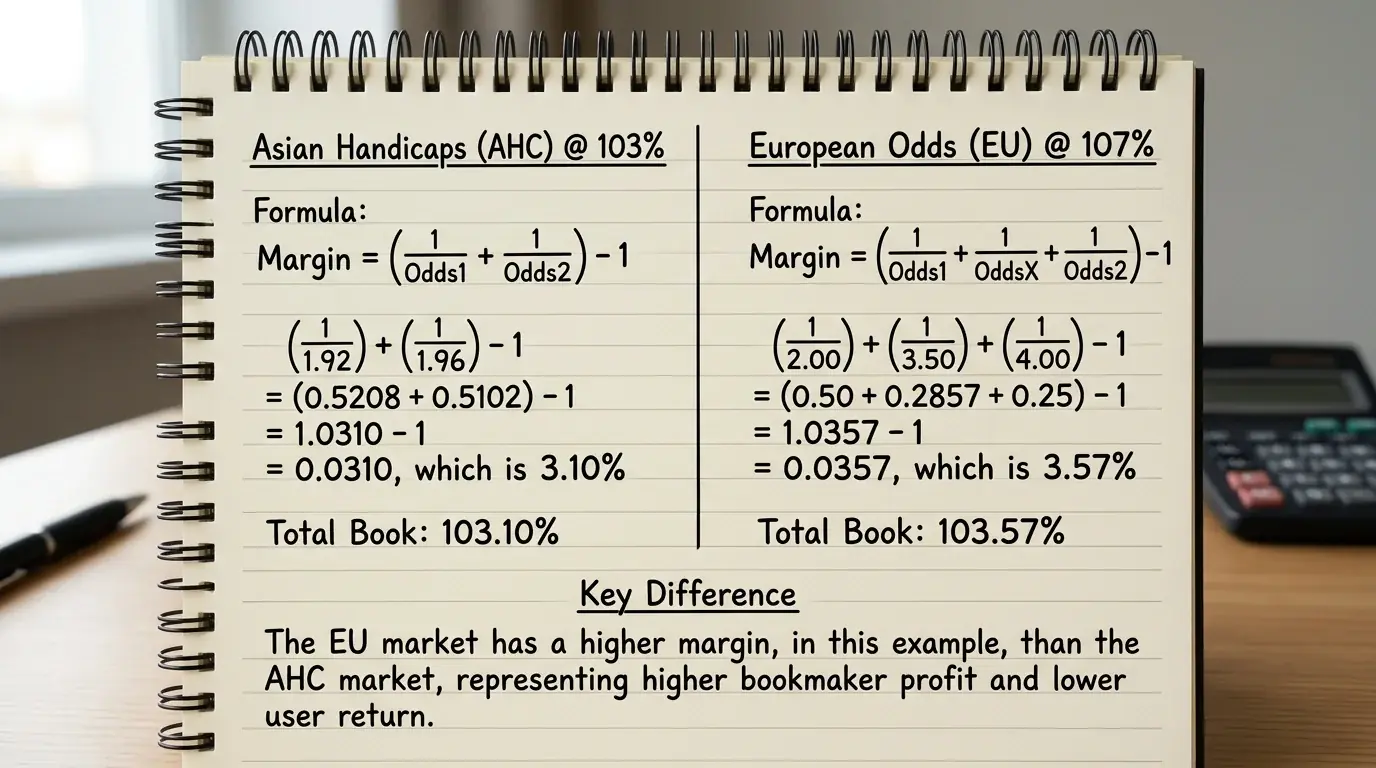 Asian Handicaps (AHC) @ 103%
Formula:
Margin = (1/Odds1 + 1/Odds2) - 1
(1/1.92) + (1/1.96) - 1
= (0.5208 + 0.5102) - 1
= 1.0310 - 1
= 0.0310, which is 3.10%
Total Book: 103.10%
European Odds (EU) @ 107%
Formula:
Margin = (1/Odds1 + 1/OddsX + 1/Odds2) - 1
(1/2.00) + (1/3.50) + (1/4.00) - 1
= (0.50 + 0.2857 + 0.25) - 1
= 1.0357 - 1
= 0.0357, which is 3.57%
Total Book: 103.57%
Key Difference
The EU market has a higher margin, in this example, than the
AHC market, representing higher bookmaker profit and lower
user return.